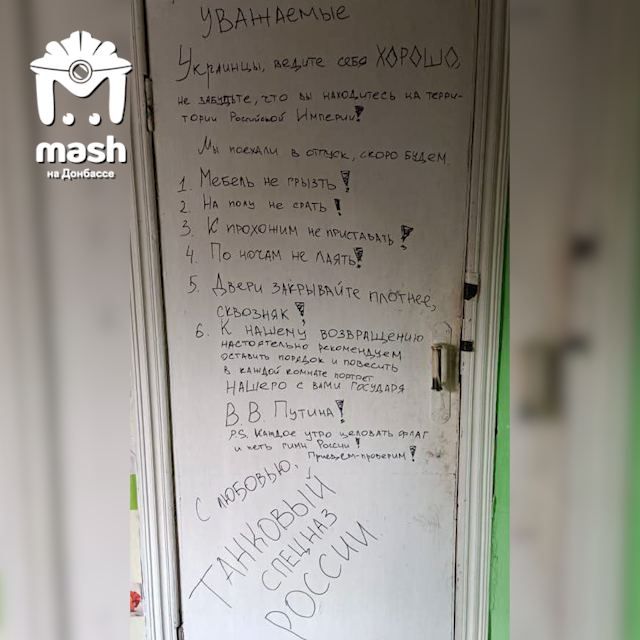 mash
на Донбассе
УВАЖАЕМЫЕ
Украинцы, ведите себя ХОРОШО,
не забудьте, что вы находитесь на терри-
тории Российской Империи!
Мы поехали в отпуск, скоро будем.
1. Мебель не грызть!
2. На полу не срать!
3. К прохожим не приставать!
4. По ночам не лаять!
5. Двери закрывайте плотнее,
сквозняк!
6. К нашему возвращению
настоятельно рекомендуем
оставить порядок и повесить
в каждой комнате портрет
нашего с вами государя
В.В. Путина!
P.S. Каждое утро целовать флаг
и петь гимн России!
Приедем-проверим!
С любовью,
ТАНКОВЫЙ
СПЕЦНАЗ
РОССИИ